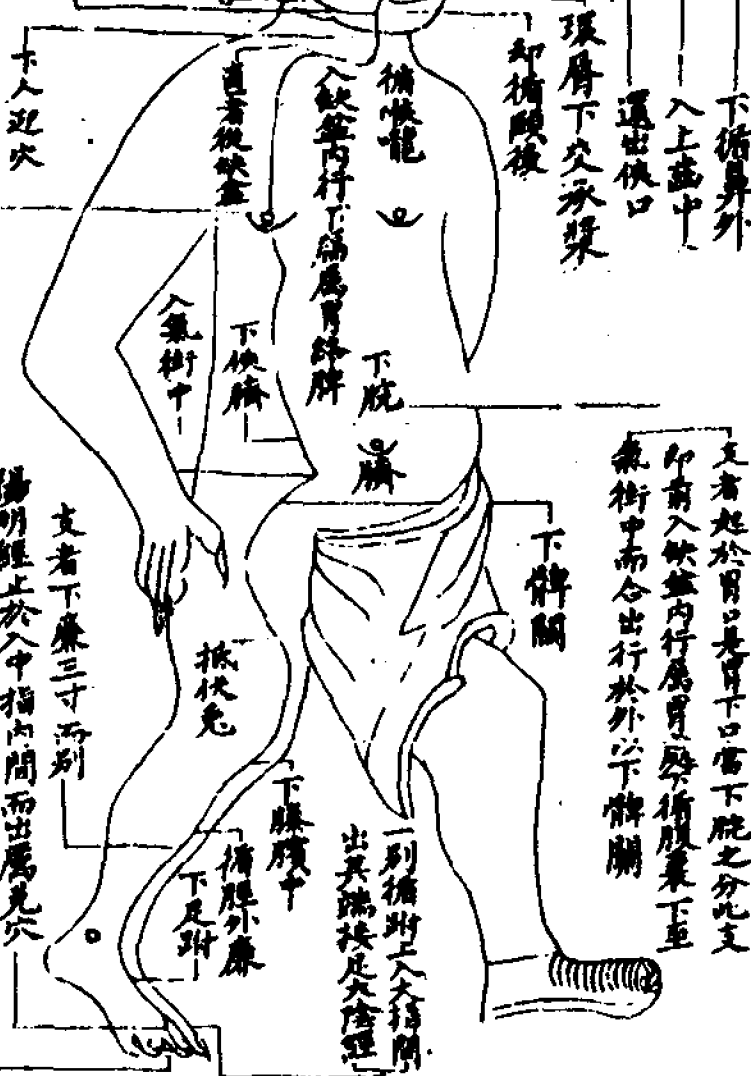 下循鼻外
入上齒中
還出俠口
環脣下交承漿
却循頤後
循喉嚨
入缺盆內行下膈屬胃絡脾
直者從缺盆
下人迎穴
入氣街中
下俠臍
下脘
臍
支者起於胃口是胃下口當下脘之分此支
即前入缺盆內行屬胃 下循腹裏下至
氣街中而合出行於外以下髀關
下髀關
抵伏兔
下膝臏中
循脛外廉
下足跗
支者下廉三寸而別
陽明經止於入中指內間而出厲兌穴
一別循跗上入大指間
出其端接足太陰經